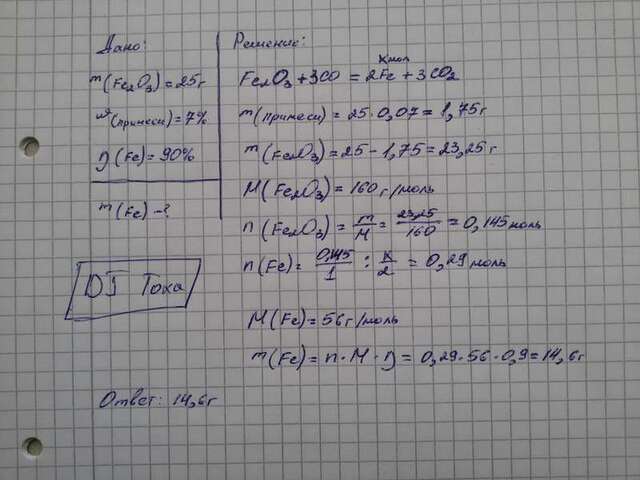 Дано:
m(Fe₂O₃) = 25г
ω(примеси) = 7%
η(Fe) = 90%
m(Fe) - ?
DJ Тоха
Решение:
x моль
Fe₂O₃ + 3CO = 2Fe + 3CO₂
m(примеси) = 25·0,07 = 1,75г
m(Fe₂O₃) = 25 - 1,75 = 23,25г
M(Fe₂O₃) = 160 г/моль
n(Fe₂O₃) = m/M = 23,25/160 = 0,145 моль
n(Fe) = 0,145/1 : x/2 = 0,29 моль
M(Fe) = 56 г/моль
m(Fe) = n·M·η = 0,29·56·0,9 = 14,6г
Ответ: 14,6г